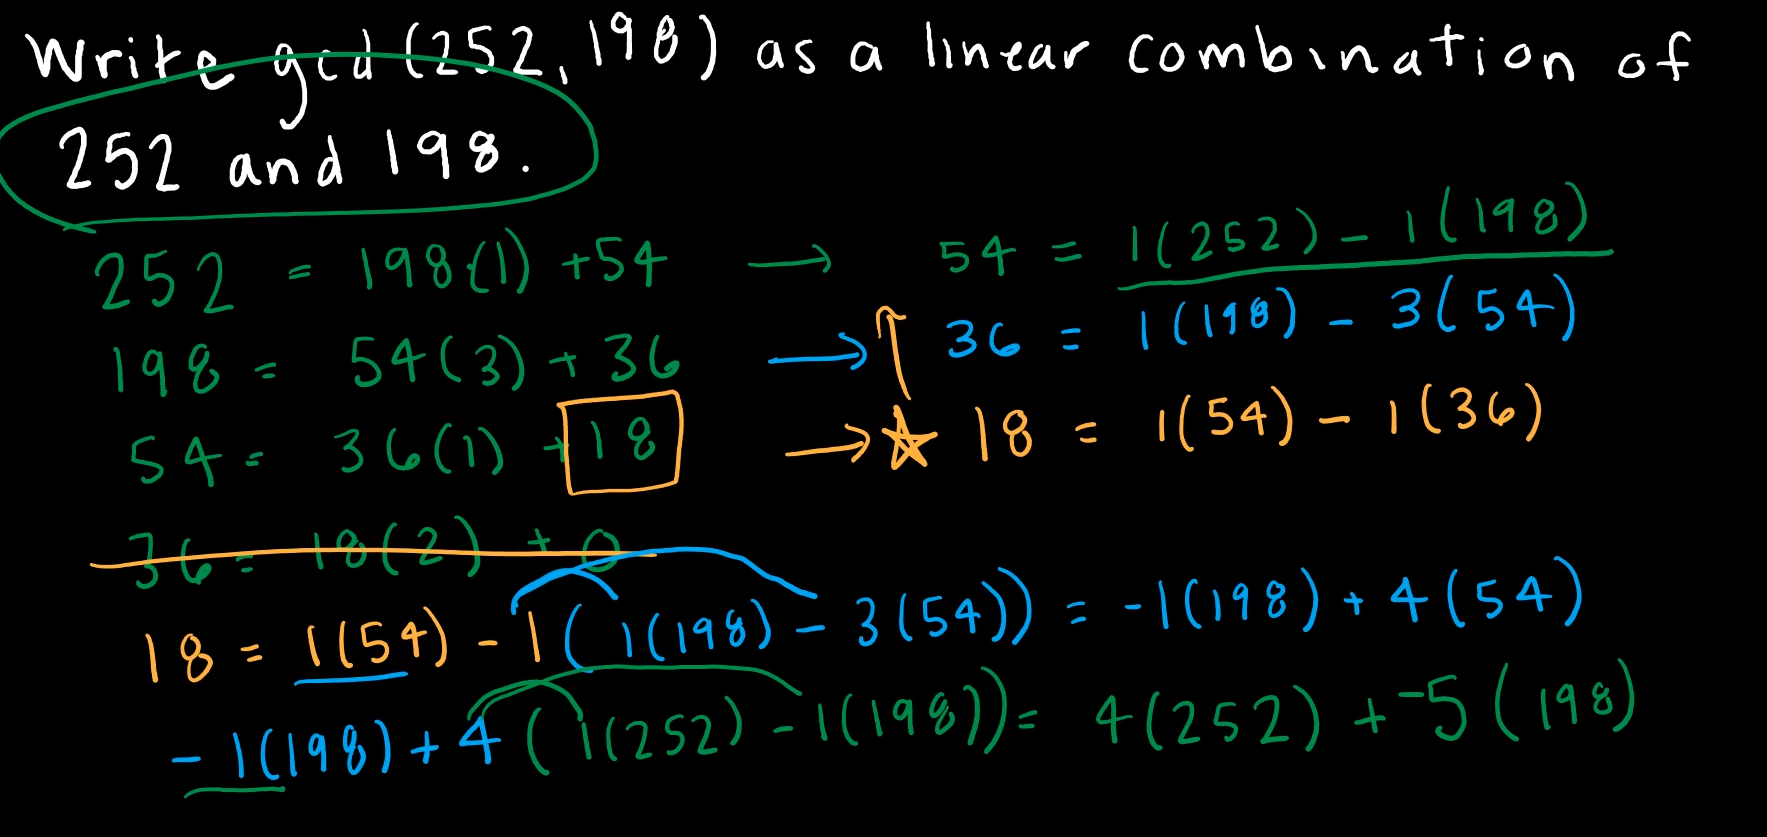 Write gcd (252, 198) as a linear combination of
252 and 198.
252 = 198(1) + 54 → 54 = 1(252) - 1(198)
198 = 54(3) + 36 → 36 = 1(198) - 3(54)
54 = 36(1) + 18 → 18 = 1(54) - 1(36)
36 = 18(2) + 0
18 = 1(54) - 1(1(198) - 3(54)) = -1(198) + 4(54)
-1(198) + 4(1(252) - 1(198)) = 4(252) + -5(198)